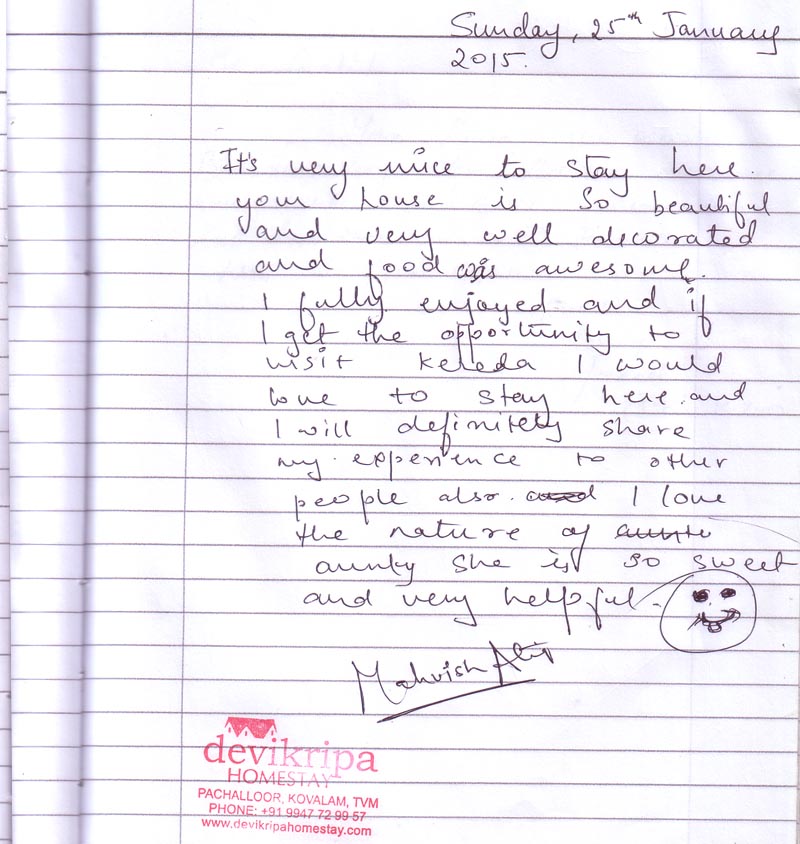 Sunday, 25th January
2015.
It's very nice to stay here.
your house is so beautiful
and very well decorated
and food was awesome.
I fully enjoyed and if
I get the opportunity to
visit Kereda I would
love to stay here and
I will definitely share
my experience to other
people also. and I love
the nature of aunte
aunty she is so sweet
and very helpful.
Mahvish
devikripa
HOMESTAY
PACHALLOOR, KOVALAM, TVM
PHONE: +91 9947 72 99 57
www.devikripahomestay.com